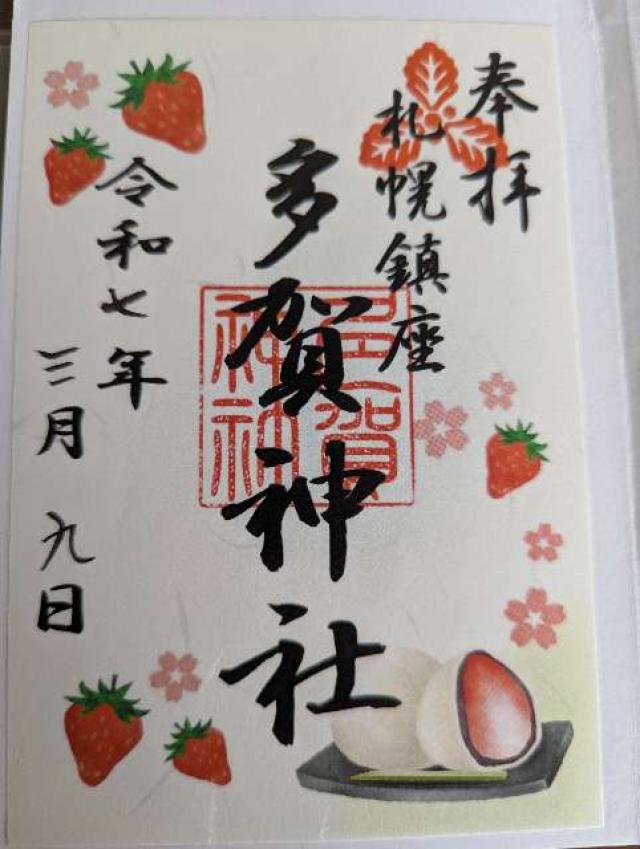 奉拝
札幌鎮座
多賀神社
多賀神社
令和七年
三月 九日